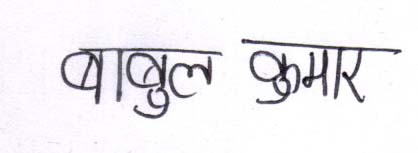 बाबुल कुमार